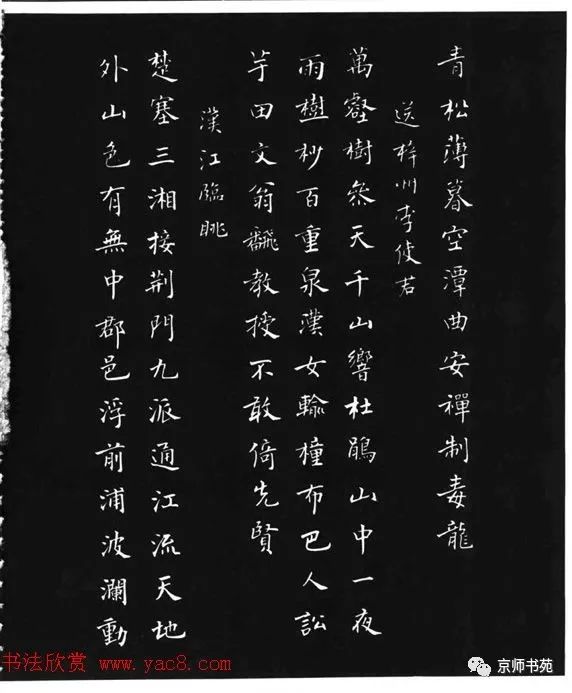 青松薄暮空潭曲安禪制毒龍
送梓州李使君
萬壑樹參天千山響杜鵑山中一夜
雨樹杪百重泉漢女輸橦布巴人訟
芋田文翁飜教授不敢倚先賢
漢江臨眺
楚塞三湘接荆門九派通江流天地
外山色有無中郡邑浮前浦波瀾動
书法欣赏 www.yac8.com
京师书苑